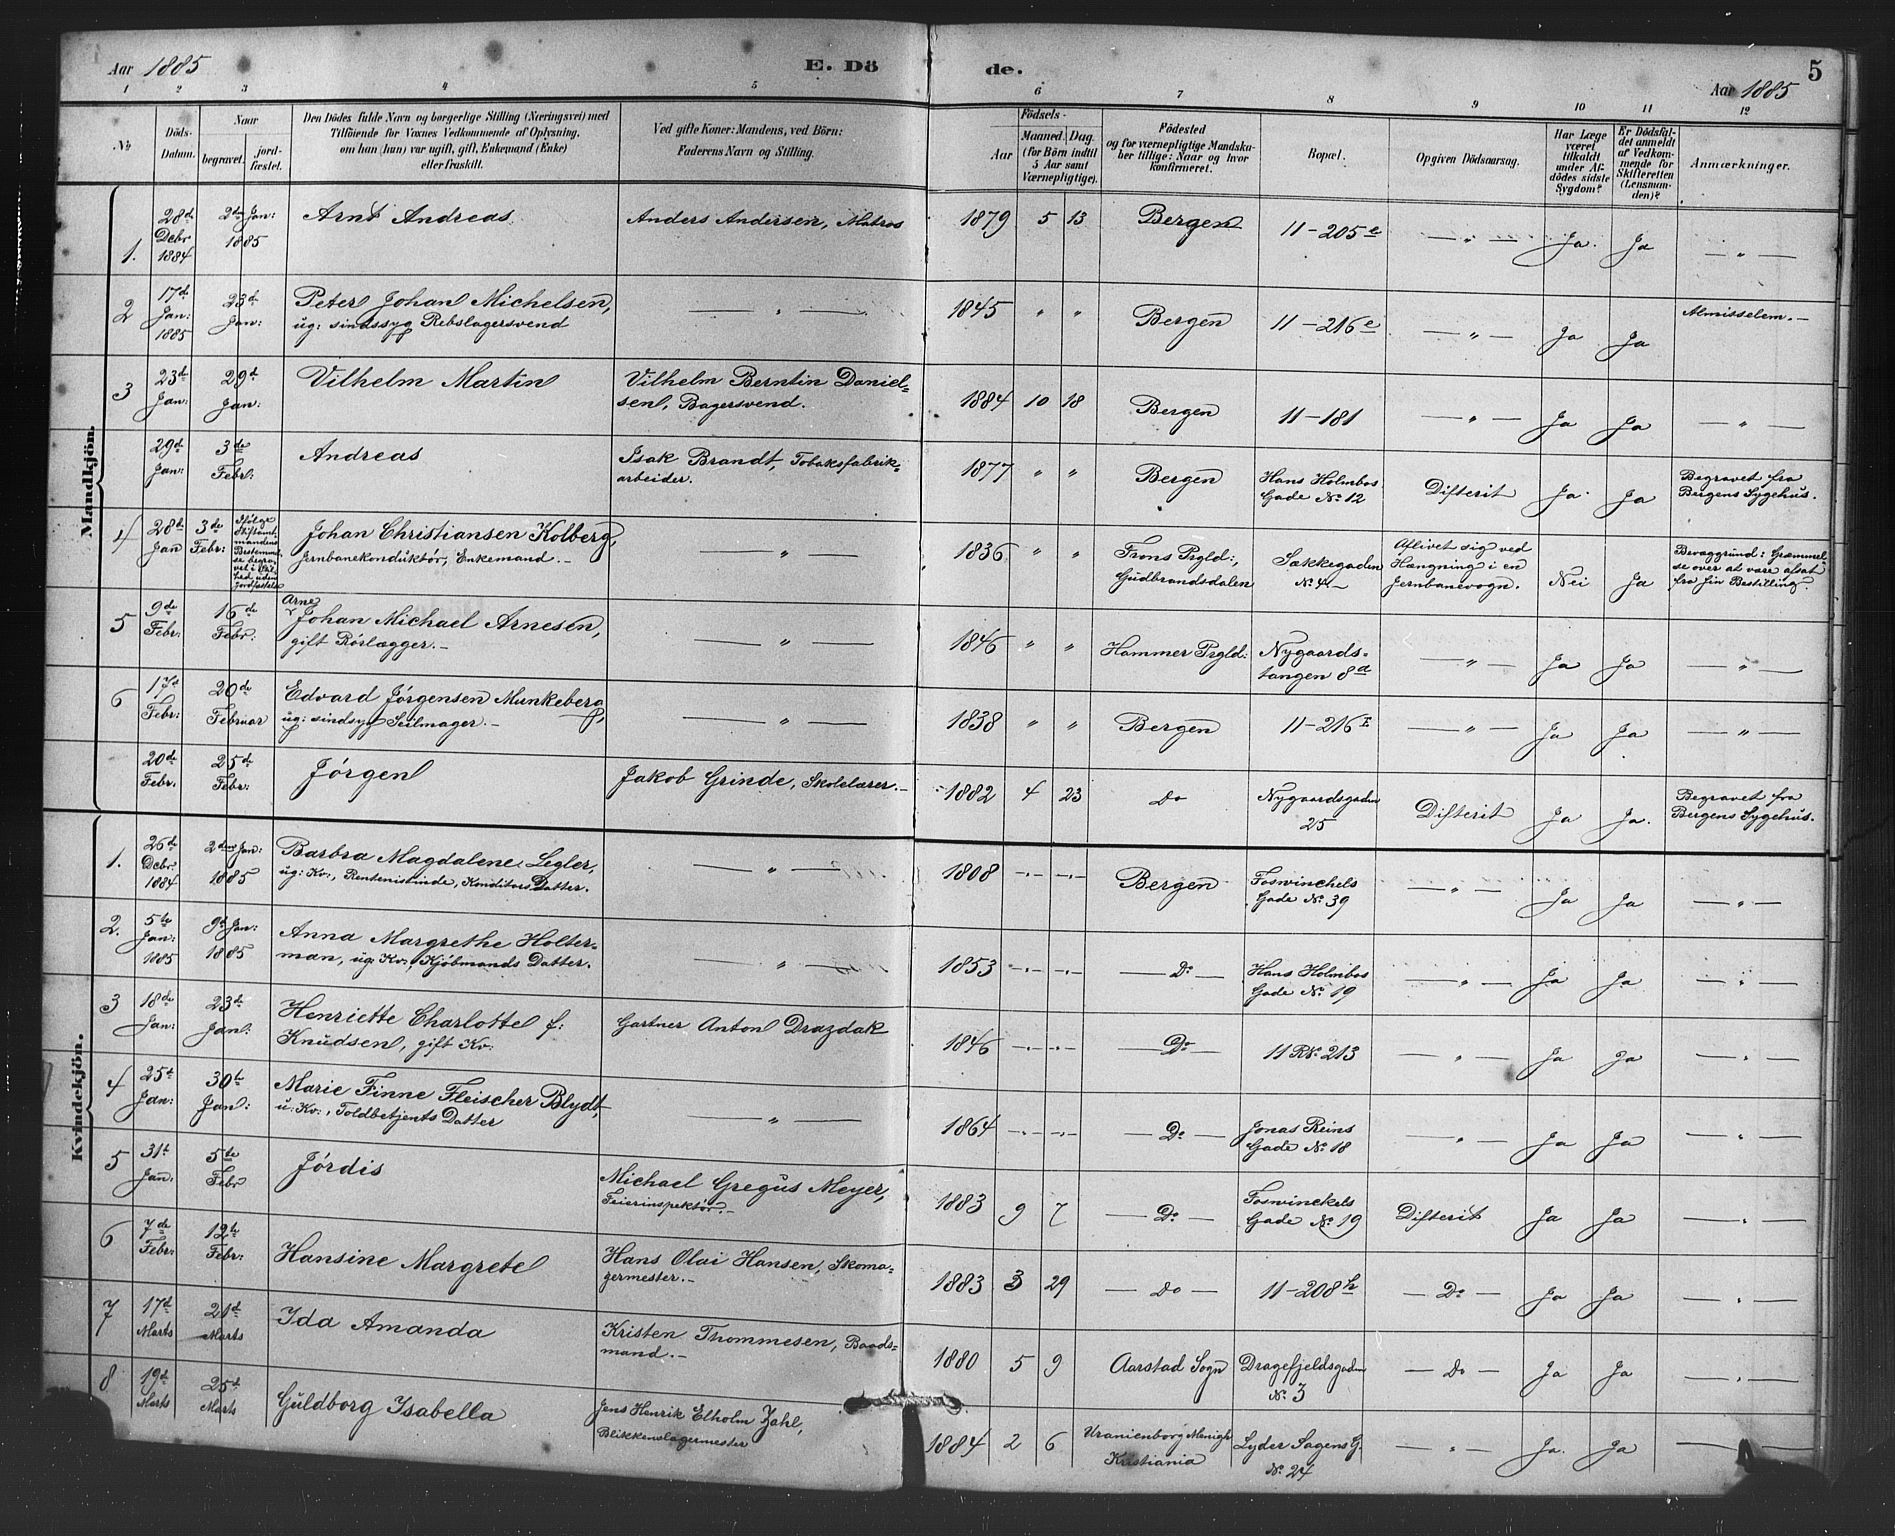 Aar 1885
E. Dö
de.
Aar 1885
5
1 2 3 4 5 6 7 8 9 10 11 12
No
Döds-
Datum.
Naar
begravet.
jord-
fæstet.
Den Dödes fulde Navn og borgerlige Stilling (Næringsvei) med
Tilföiende for Voxnes Vedkommende af Oplysning,
om han (hun) var ugift, gift, Enkemand (Enke)
eller fraskilt.
Ved gifte Koner: Mandens, ved Börn:
Faderens Navn og Stilling.
Födsels-
Aar
Maaned. Dag.
(for Börn indtil
5 Aar samt
Værnepligtige).
Födested
og for værnepligtige Mandska-
ber tillige: Naar og hvor
konfirmeret.
Bopæl.
Opgiven Dödsaarsag.
Har Læge
været
tilkaldt
under Af-
dödes sidste
Sygdom?
Er Dödsfal-
det anmeldt
af Vedkom-
mende for
Skifteretten
(Lensman-
den)?
Anmærkninger.
Mandkjön.
1. 28d Decbr 1884 2den Jan: 1885 Arnt Andreas. Anders Andersen, Matros 1879 5 13 Bergen 11-205e — " — Ja. Ja — " —
2 17d Jan: 1885 23d Jan: Peter Johan Michelsen, — " — 1845 " " Bergen 11-216e — " — Ja Ja Almisselem.-
ug: sindssyg Rebslagersvend
3 23d Jan: 29d Jan: Vilhelm Martin Vilhelm Berntin Daniel-
sen, Bagersvend. 1884 10 18 Bergen 11-181 — " — Ja Ja — " —
29d Jan: 3de Febr: Andreas Isak Brandt, Tobaksfabrik-
arbeider. 1877 " " Bergen Hans Holmbos
Gade No 12 Difterit Ja. Ja Begravet fra
Bergens Sygehus.
4 28d Jan 3de Febr: Ifølge
Stiftamt-
mandens
Bestemmel-
se begra-
vet i
uden
Jordfæstelse
Johan Christiansen Kolberg, — " — 1836 " " Frons Prgld:,
Gudbrandsdalen Sækkegaden
No 4 — Aflivet sig ved
Hængning i en
Jernbanevogn. Nei Ja Bevæggrund: Græmmel-
se over at være afsat
fra sin Bestilling.
Jernbanekonduktør, Enkemand.-
5 9de Febr: 16de Febr: Arne
Johan Michael Arnesen, — " — 1846 " " Hammer Prgld: Nygaards-
tangen 8d — " — Ja Ja — " —
gift Rørlægger.-
6 17d Febr: 20de Februar Edvard Jørgensen Munkeberg, — " — 1838 " " Bergen 11-216E — " — Ja Ja — " —
ug: sindsyg Seilmager.-
20de Febr. 25de Febr: Jørgen Jakob Grinde, Skolelærer.- 1882 4 23 Do Nygaardsgaden
25 Difterit Ja Ja. Begravet fra
Bergens Sygehus.
Kvindekjön.
1. 26de Decbr. 1884 2den Jan: 1885 Barbra Magdalene Legler, — " — 1808 -.- -.- Bergen Foswinckels
Gade No 39 — " — Ja Ja — " —
ug: Kv:, Rentenistinde, Konditors Datter.
2. 5te Jan: 1885 9d Jan: 1885 Anna Margrethe Holter-
man, ug: Kv:, Kjøbmands Datter. — " — 1853 -.- -.- — Do — Hans Holmbos
Gade No 19 — " — Ja Ja — " —
3 18de Jan: 23de Jan: Henriette Charlotte f:
Knudsen, gift Kv: Gartner Anton Drazdak 1846 -.- -.- — Do — 11 RNo 213 — " — Ja Ja — " —
4 25t Jan: 30te Jan: Marie Finne Fleischer Blydt, — " — 1864 -.- -.- — Do — Jonas Reins
Gade No 18 — " — Ja Ja — " —
u: Kv:, Toldbetjents Datter
5 31t Jan: 5te Febr Jørdis Michael Gregus Meyer,
Feierinspektør.- 1883 9 7 — Do — Foswinckels
Gade No 19 Difterit Ja Ja — " —
6 7de Febr: 12te Febr: Hansine Margrete Hans Olai Hansen, Skoma-
germester.- 1883 3 29 — Do — 11-208h — Do — Ja Ja — " —
7 17d Marts 21d Marts Ida Amanda Kristen Thommesen, Baads-
mand.- 1880 5 9 Aarstad Sogn Dragefjeldsgaden
No 3 — Do — Ja Ja — " —
8 19d Marts 25d Marts Guldborg Isabella Jens Henrik Elholm Zahl,
Blikkenslagermester 1884 2 6 Uranienborg Menigh
Kristiania Lyder Sagens G.
No 24 — " — Ja. Ja — " —